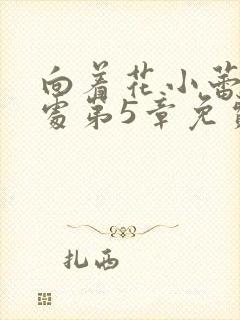 向着花小蕾
处第5章免费
扎西